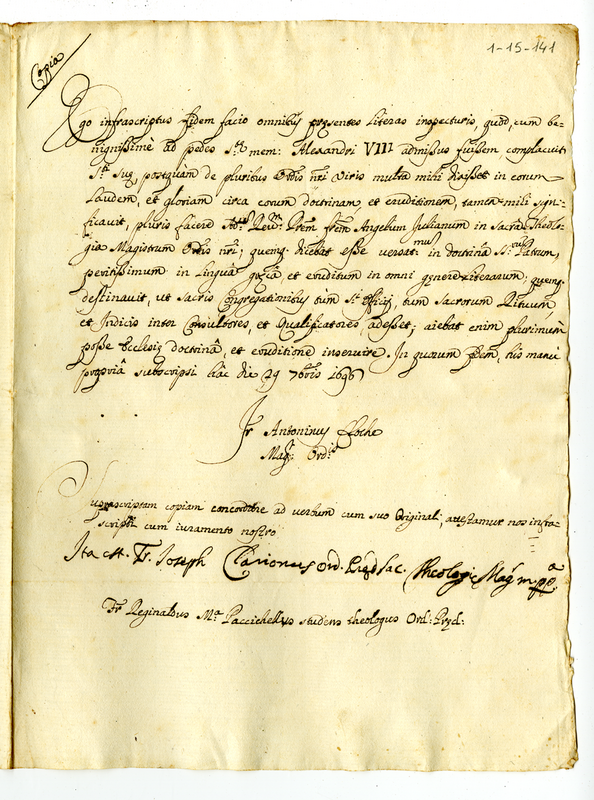 1-15-141
Copia
Ego infrascriptus fidem facio omnibus pręsentes literas inspecturis, quòd, cum be-
nignissimè ad pedes S.ę mem: Alexandri VIII admissus fuissem, complacuit
S.tas Suę, postquàm de pluribus Ordis nri viris multa mihi dixisset in eorum
laudem, et gloriam circa eorum doctrinam, et eruditionem, tamen mihi signi-
ficavit, pluris facere Adm. Reum. Prem. frem Angelum Julianum in Sacra Theolo-
gia Magistrum Ordis nri; quemq. dicebat esse versatmum in doctrinâ SS. Patrum,
peritissimum in linguâ gręcâ, et eruditum in omni genere literarum; quemq.
destinavit, ut Sacris Congregationibus tùm S.ti Officij, tum Sacrorum Rituum,
et Indicis inter Consultores, et Qualificatores, adesset; aiebat enim plurimum
posse Ecclesię doctrinâ, et eruditione inservire. In quorum fidem, his manu
propriâ subscripsi hâc die 29 7bris 1696
Fr Antoninus Cloche
Mag.r Ord.is
Supradscriptam copiam concordare ad verbum cum suo Originali, attestamur nos infra-
scripti cum iuramento nostro
Ita est. Fr. Joseph Clarionus ord. Pręd. Sac. Theologię Mag.r m. pp.a
Fr Reginaldus M.a Pacichellus studens theologus Ord: Pręd: